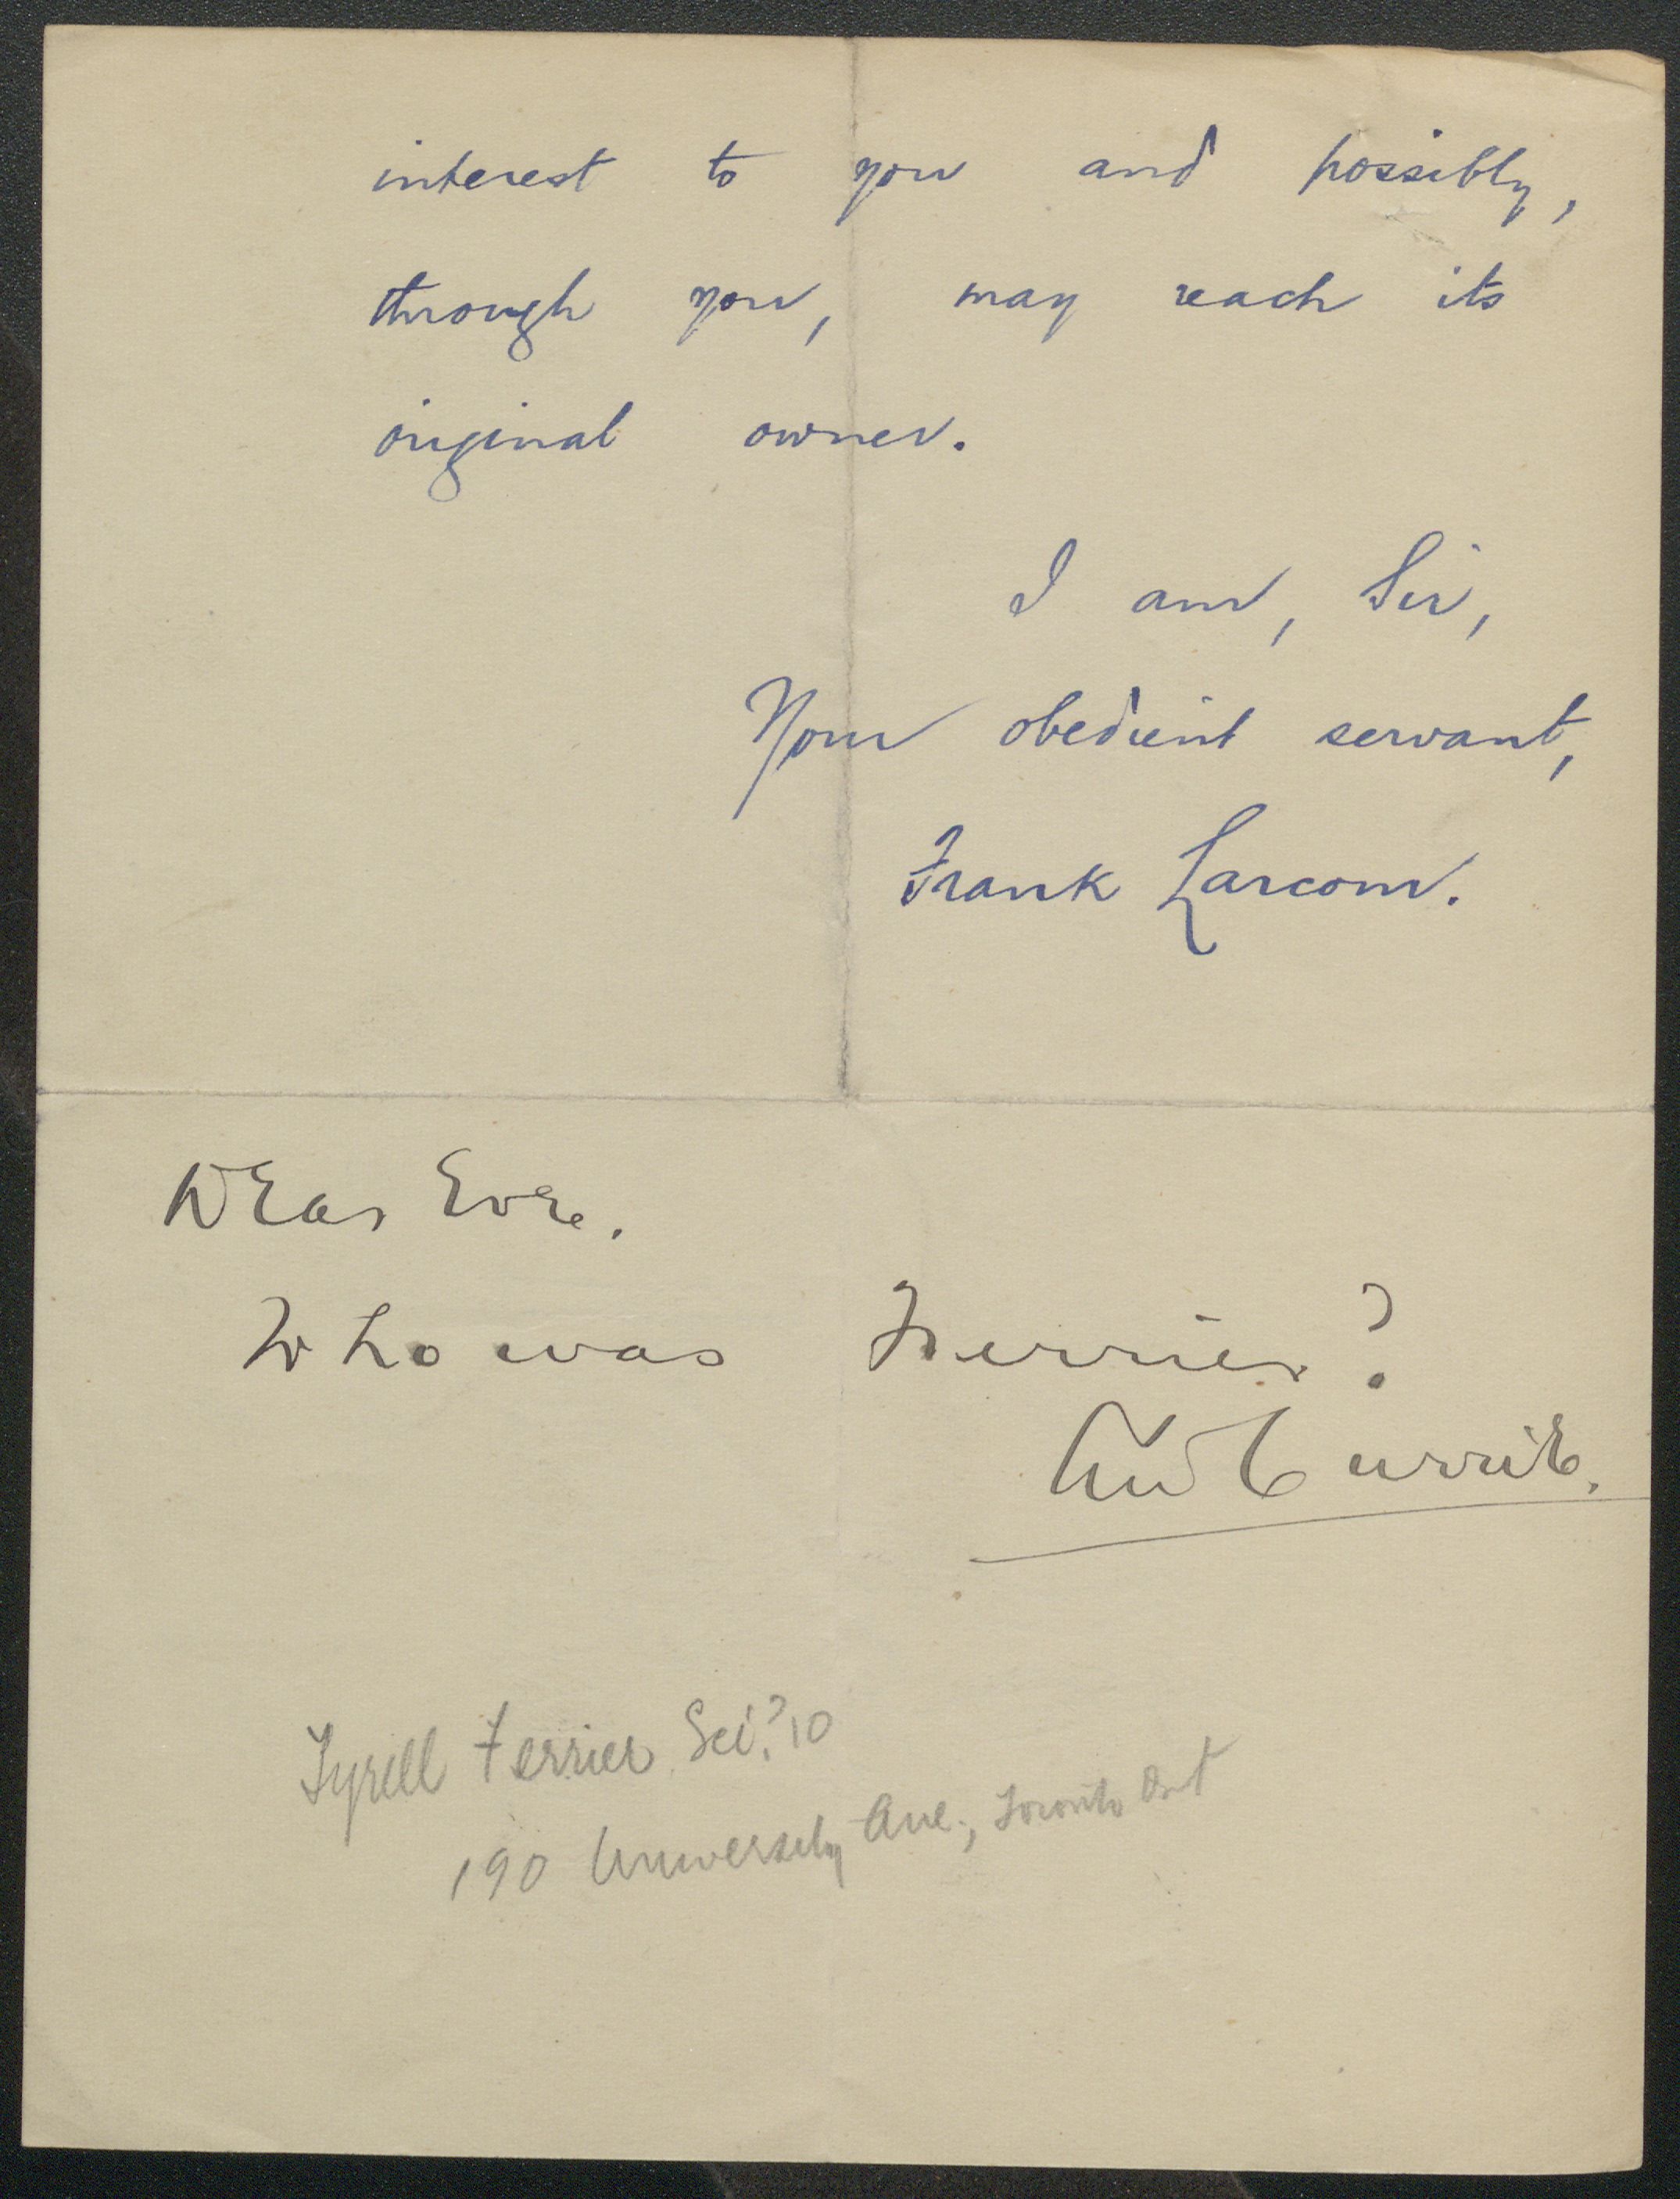 interest to you and possibly,
through you, may reach its
original owner.
I am, Sir,
Your obedient servant,
Frank Larcom.
Dear Eve.
Who was Ferrier?
AWCurrie.
Tyrell Ferrier Sci. '10
190 University Ave., Toronto Ont